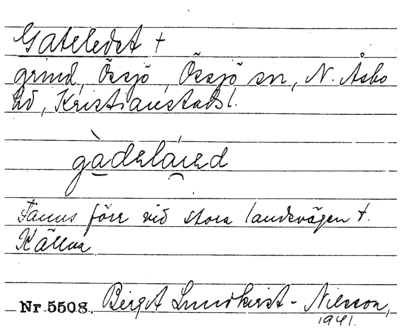 Gateledet +
grind, Össjö, Össjö sn, N. Åsbo
hd, Kristianstads l.
gàdelàıed
Fanns förr vid stora landsvägen t.
Källna
Nr 5508. Birgit Lundkvist-Nilsson,
1941.